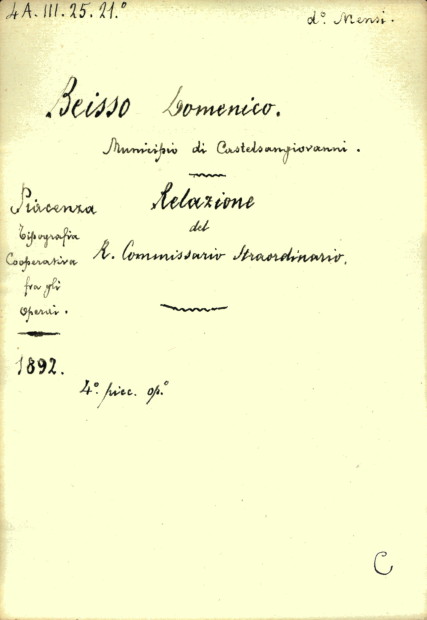 4 A. III. 25. 21.º
dº. Mensi.
Beisso Domenico.
Municipio di Castelsangiovanni.
Relazione
del
R. Commissario Straordinario.
Piacenza
Tipografia
Cooperativa
fra gli
Operai.
1892.
4º. picc. op.º
C